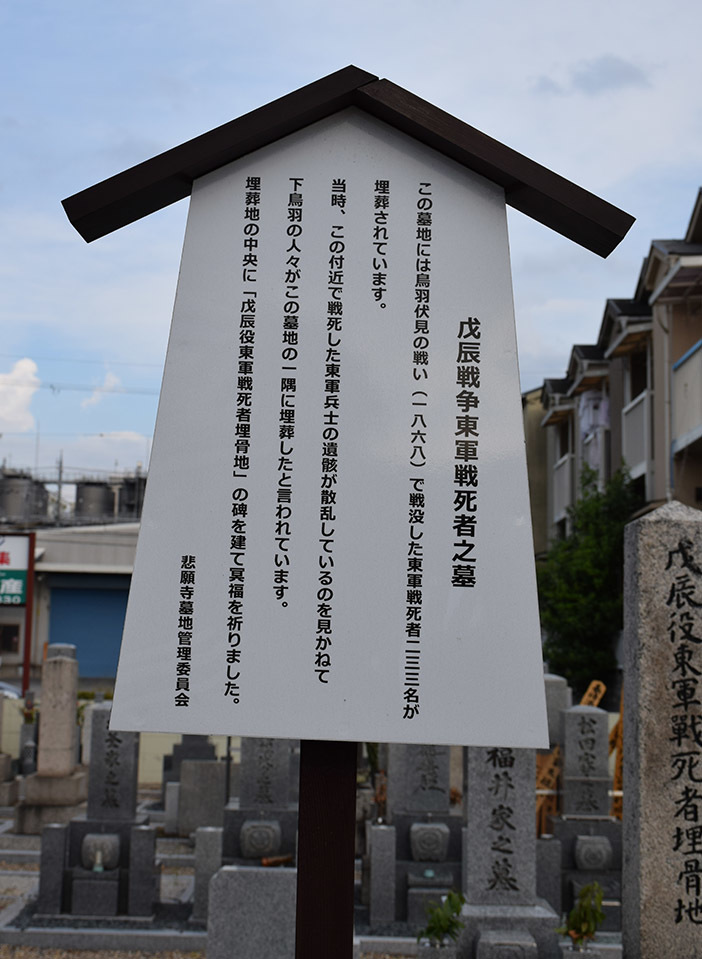 戊辰戦争東軍戦死者之墓
この墓地には鳥羽伏見の戦い（一八六八）で戦没した東軍戦死者二三三名が
埋葬されています。
当時、この付近で戦死した東軍兵士の遺骸が散乱しているのを見かねて
下鳥羽の人々がこの墓地の一隅に埋葬したと言われています。
埋葬地の中央に「戊辰役東軍戦死者埋骨地」の碑を建て冥福を祈りました。
悲願寺墓地管理委員会
戊辰役東軍戰死者埋骨地
福井家之墓
松田家之墓
家之墓
集
産